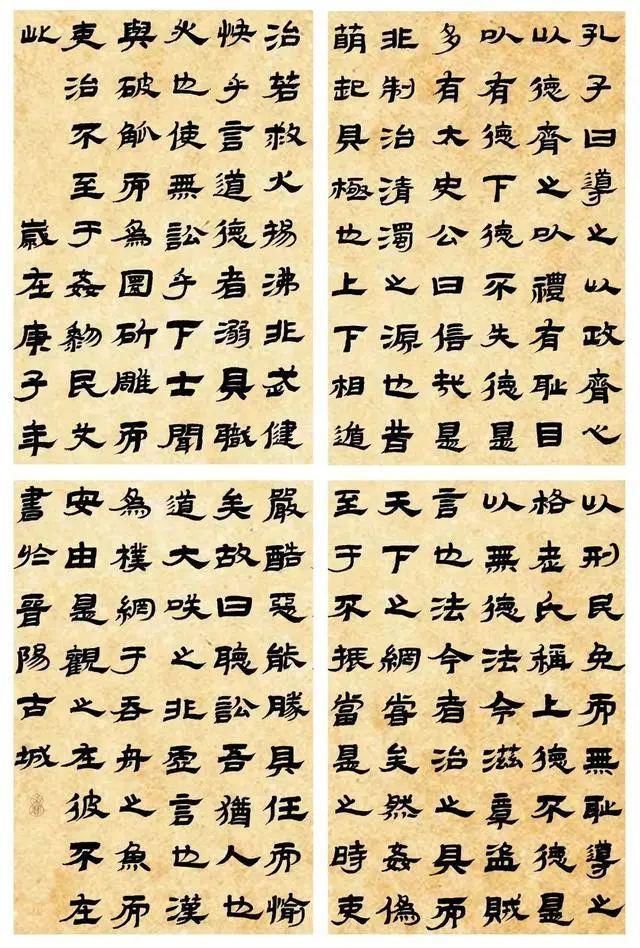 孔子曰導之以政齊之以刑民免而無恥導之
以德齊之以禮有恥且格老氏稱上德不德是
以有德下德不失德是以無德法令滋章盜賊
多有太史公曰信哉是言也法令者治之具而
非制治清濁之源也昔天下之網嘗矣然姦偽
萌起其極也上下相遁至于不振當是之時吏
治若救火揚沸非武健嚴酷惡能勝其任而愉
快乎言道德者溺其職矣故曰聽訟吾猶人也
必也使無訟乎下士聞道大咲之非虛言也漢
與破觚而為圜斫雕而為樸網于吞舟之魚而
吏治不至于姦黎民艾安由是觀之在彼不在
此 歲在庚子年書於晉陽古城